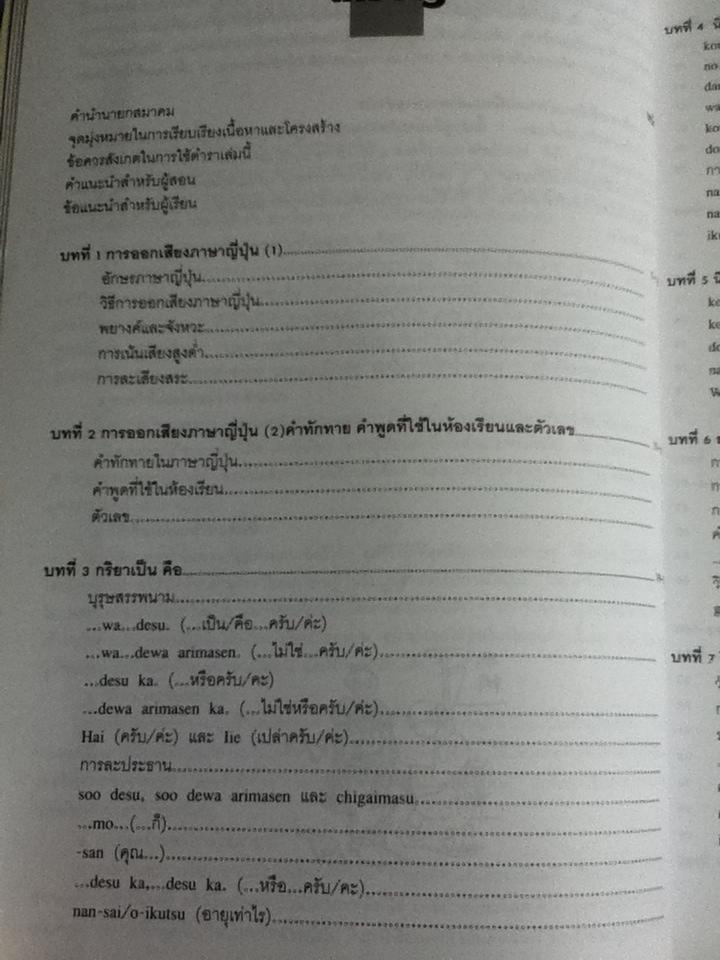 คำนำนายกสมาคม
จุดมุ่งหมายในการเรียบเรียงเนื้อหาและโครงสร้าง
ข้อควรสังเกตในการใช้ตำราเล่มนี้
คำแนะนำสำหรับผู้สอน
ข้อแนะนำสำหรับผู้เรียน
บทที่ 1 การออกเสียงภาษาญี่ปุ่น (1)
อักษรภาษาญี่ปุ่น
วิธีการออกเสียงภาษาญี่ปุ่น
พยางค์และจังหวะ
การเน้นเสียงสูงต่ำ
การละเสียงสระ
บทที่ 2 การออกเสียงภาษาญี่ปุ่น (2)คำทักทาย คำพูดที่ใช้ในห้องเรียนและตัวเลข
คำทักทายในภาษาญี่ปุ่น
คำพูดที่ใช้ในห้องเรียน
ตัวเลข
บทที่ 3 กริยาเป็น คือ
บุรุษสรรพนาม
...wa...desu. (...เป็น/คือ...ครับ/ค่ะ)
...wa...dewa arimasen. (...ไม่ใช่...ครับ/ค่ะ)
...desu ka. (...หรือครับ/คะ)
...dewa arimasen ka. (...ไม่ใช่หรือครับ/คะ)
Hai (ครับ/ค่ะ) และ Iie (เปล่าครับ/ค่ะ)
การละประธาน
soo desu, soo dewa arimasen และ chigaimasu
...mo...(...ก็)
-san (คุณ...)
...desu ka,...desu ka. (...หรือ...ครับ/คะ)
nan-sai/o-ikutsu (อายุเท่าไร)
บทที่ 4
no
wa
บทที่ 5
บทที่ 6
บทที่ 7